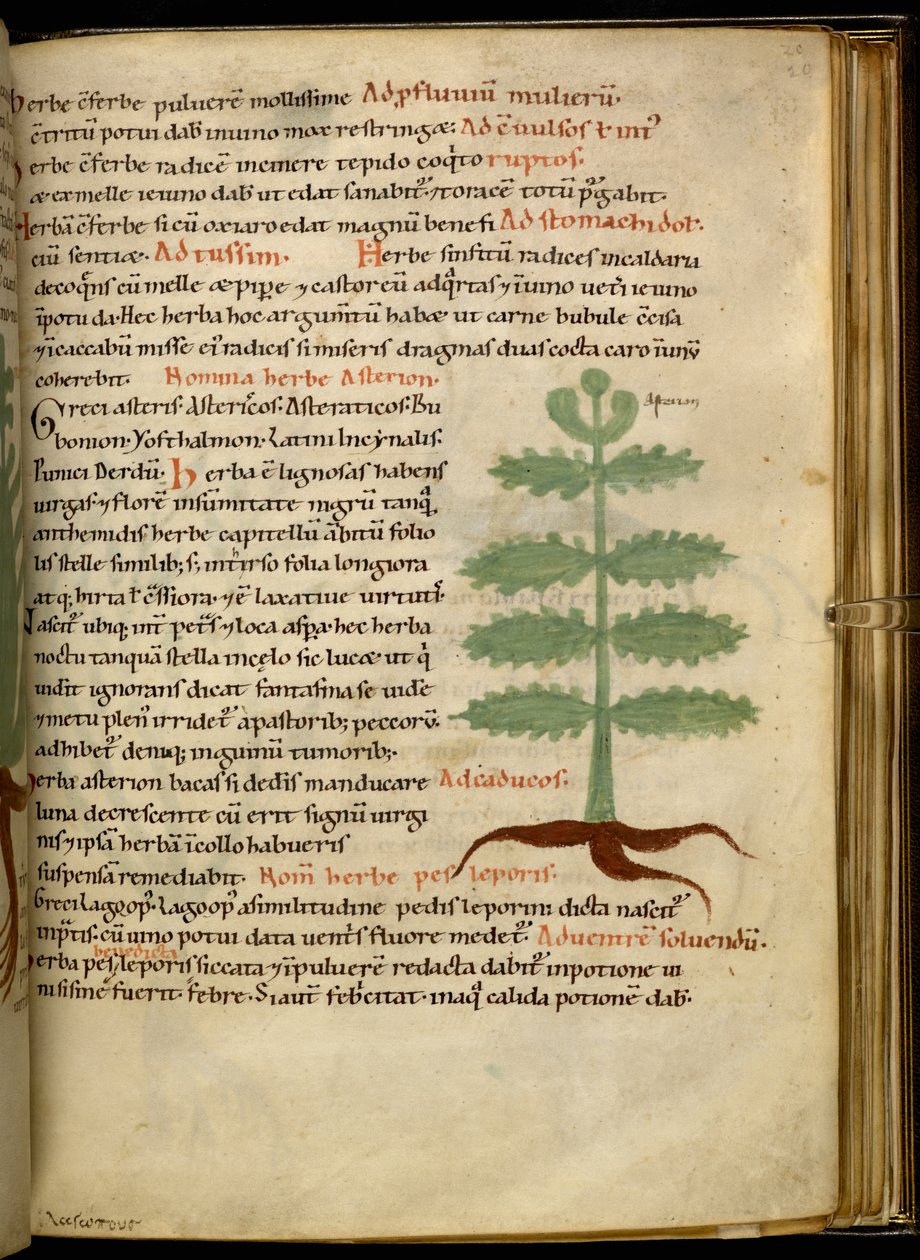 20
20
herbe c̄ferbe pulverē mollissime Ad ꝓfluviū mulierū·
c̄tritū potui dab̄ in uino mox restringæ: Ad c̄uulsos ł int̄
herbe c̄ferbe radicē in cinere tepido coq̄to ruptos·
æ ex melle ieiuno dab̄ ut edat sanabit᷑· ⁊toracē totū p᷑gabit·
Herbā c̄ferbe si cū oxiaro edat magnū benefi Ad stomachi dol̄·
ciū sentiæ· Ad tussim· Herbe sinfitū radices in caldaria
decoq̄ns cū melle æ pip̄e ⁊ castoreū adq̄rtas ⁊ ī uino uet̄i ieiuno
ī potu da· Hec herba hoc argum̄tū habæ ut carne bubule c̄cisa
⁊ ī caccabū misse ei᷑ radicis si miseris dragmas duas cocta caro ī unū
coherebit· Nomina herbe Asterion·
Greci asteris· Astericos· Asteraticos· Bu
bonion· Yofthalmon· Latini Incẏnalis·
Punici Derdū· herba ē lignosas habens
uirgas· ⁊ florē in sūmitate nigrū tanq̄
anthemidis herbe capitellū ābitū folio
lis stelle similib; s; in tirso folia longiora
atq; hirta ł c̄ssiora· ⁊ ē laxative virtuti᷑·
Nascit᷑ ubiq; int̄ pet̄s ⁊ loca asꝑa· hec herba
noctu tanquā stella in celo sic lucæ ut q̄
uidit ignorans dicat fantasma se uide
⁊ metu plen᷑ irridet᷑ a pastorib; peccorū·
adhibet᷑ deniq; inguinū tumorib;·
herba asterion bacas si dedis manducare Ad caducos·
luna decrescente cū erit signū uirgi
nis ⁊ ipsā herbā ī collo habueris
suspensā remediabit· Nom̄ herbe pes leporis·
Greci Lagoop᷑· Lagoop᷑ a similitudine pedis leporini dicta nascit᷑
in p̄tis· cū uino potui data uent̄s fluore medet᷑· Ad uentrē soluendū·
benedicta
herba pes leporis siccata ⁊ ī pulverē redacta dabit᷑ in potione ui
ni si sine fuerit febre· Si aut̄ feb̄citat· in aq̄ calida potionē dab̄·
Asterion